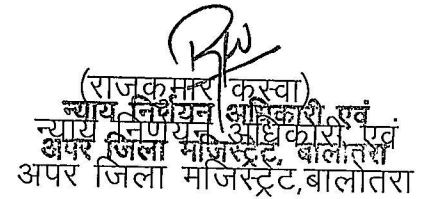 (राजकुमार कस्वा)
न्याय निर्णयन अधिकारी एवं
न्याय निर्णयन अधिकारी एवं
अपर जिला मजिस्ट्रेट, बालोतरा
अपर जिला मजिस्ट्रेट,बालोतरा